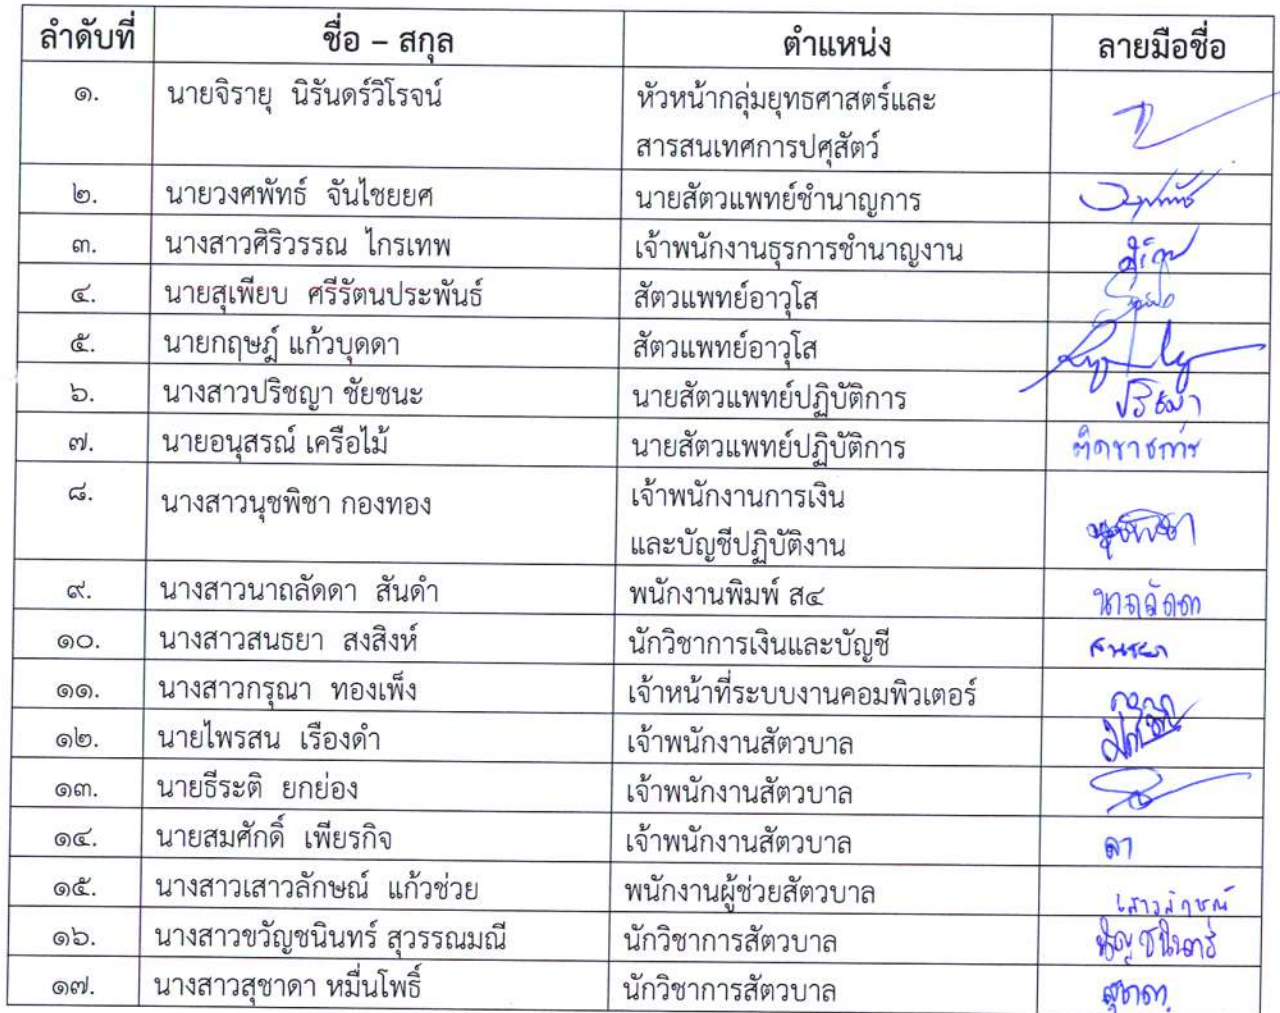 ลำดับที่ ชื่อ – สกุล ตำแหน่ง ลายมือชื่อ
๑. นายจิรายุ นิรันดร์วิโรจน์ หัวหน้ากลุ่มยุทธศาสตร์และ
สารสนเทศการปศุสัตว์
๒. นายวงศพัทธ์ จันไชยยศ นายสัตวแพทย์ชำนาญการ
๓. นางสาวศิริวรรณ ไกรเทพ เจ้าพนักงานธุรการชำนาญงาน
๔. นายสุเพียบ ศรีรัตนประพันธ์ สัตวแพทย์อาวุโส
๕. นายกฤษฎ์ แก้วบุดดา สัตวแพทย์อาวุโส
๖. นางสาวปริชญา ชัยชนะ นายสัตวแพทย์ปฏิบัติการ
๗. นายอนุสรณ์ เครือไม้ นายสัตวแพทย์ปฏิบัติการ ติดราชการ
๘. นางสาวนุชพิชา กองทอง เจ้าพนักงานการเงิน
และบัญชีปฏิบัติงาน
๙. นางสาวนาถลัดดา สันดำ พนักงานพิมพ์ ส๔ นาถลัดดา
๑๐. นางสาวสนธยา สงสิงห์ นักวิชาการเงินและบัญชี สนธยา
๑๑. นางสาวกรุณา ทองเพ็ง เจ้าหน้าที่ระบบงานคอมพิวเตอร์
๑๒. นายไพรสน เรืองดำ เจ้าพนักงานสัตวบาล
๑๓. นายธีระติ ยกย่อง เจ้าพนักงานสัตวบาล
๑๔. นายสมศักดิ์ เพียรกิจ เจ้าพนักงานสัตวบาล ลา
๑๕. นางสาวเสาวลักษณ์ แก้วช่วย พนักงานผู้ช่วยสัตวบาล เสาวลักษณ์
๑๖. นางสาวขวัญชนินทร์ สุวรรณมณี นักวิชาการสัตวบาล ขวัญชนินทร์
๑๗. นางสาวสุชาดา หมื่นโพธิ์ นักวิชาการสัตวบาล สุชาดา